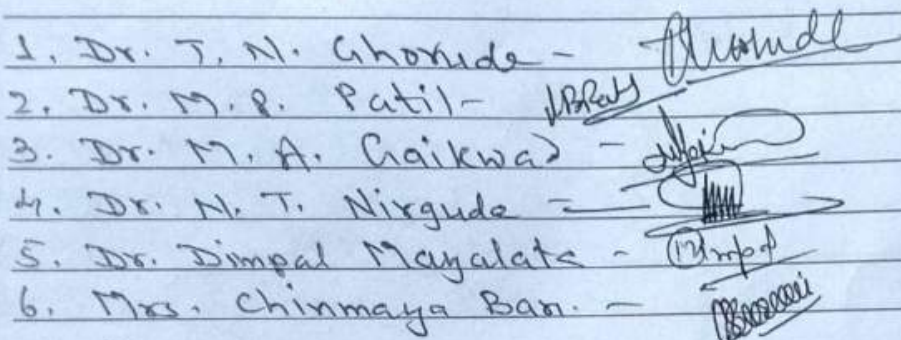 1. Dr. T. N. Ghorude -
2. Dr. M. B. Patil -
3. Dr. M. A. Gaikwad -
4. Dr. N. T. Nirgude -
5. Dr. Dimpal Mayalata -
6. Mrs. Chinmaya Ban. -